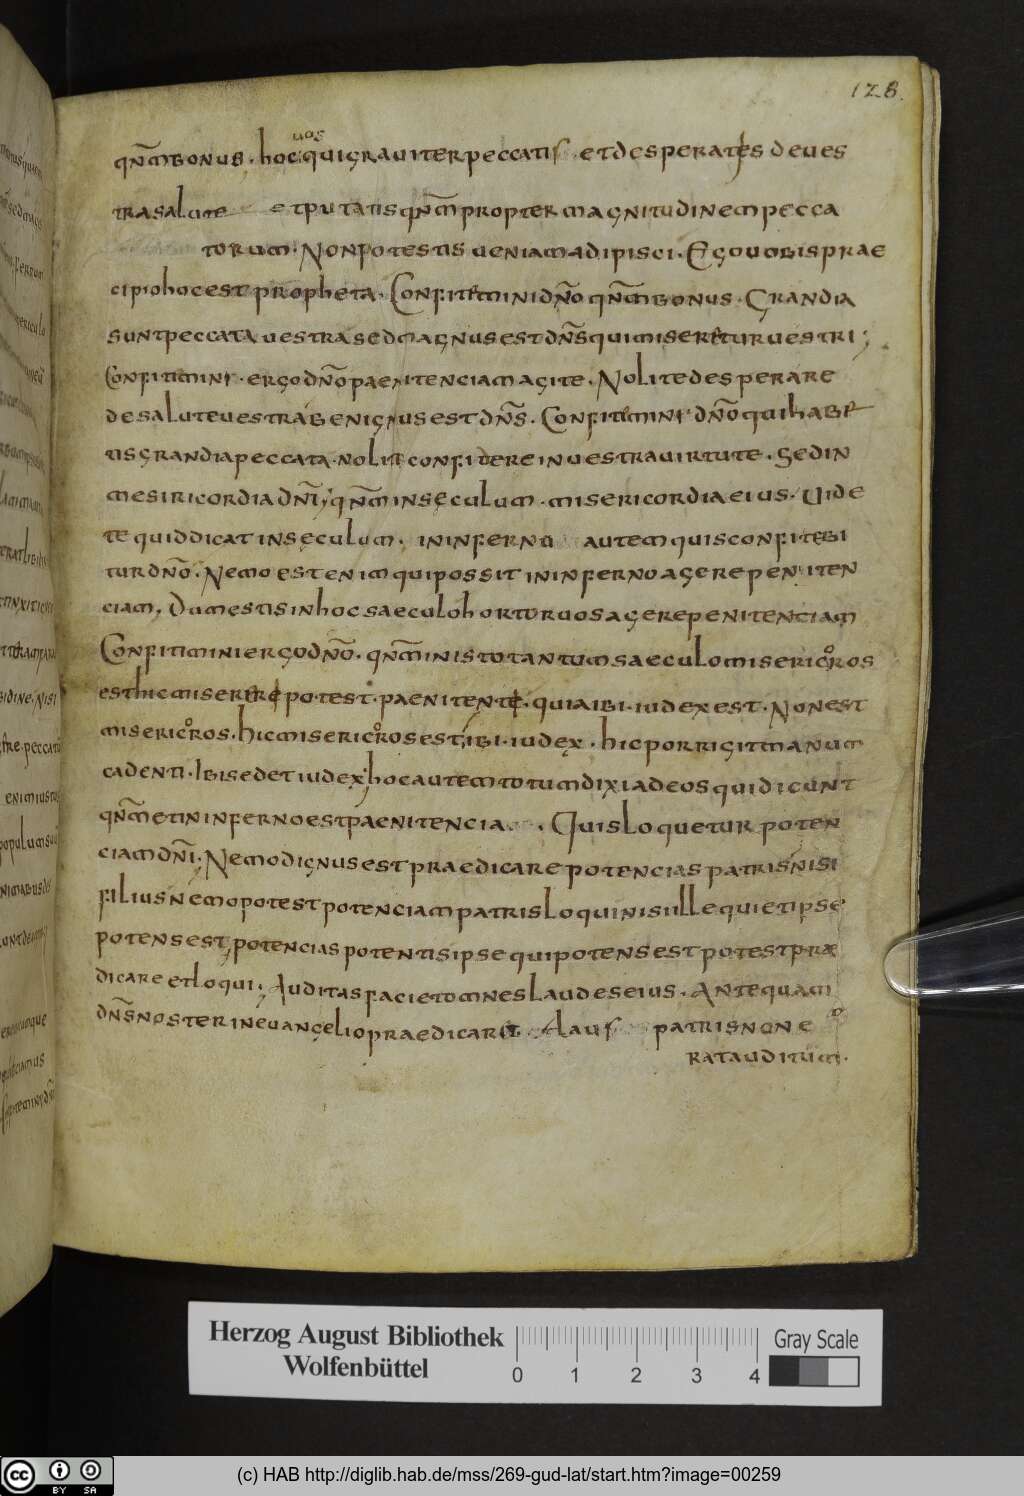 128
qnm bonus. hoc uos qui grauiter peccatis. et desperates de ues
tra salute et putatis qnm propter magnitudinem pecca
torum. Non potestis ueniam adipisci. Ego uobis prae
cipio hoc est propheta. Confitemini dno qnm bonus. Grandia
sunt peccata uestra sed magnus est dns qui miseretur uestri;
Confitimini. ergo dno paenitenciam agite. Nolite desperare
de salute uestra benignus est dns. Confitimini dno qui habe
tis grandia peccata. nolite confidere in uestra uirtute. Sed in
mesiricordia dni, qnm in seculum. misericordia eius. Uide
te quid dicat in seculum. in inferno autem quis confitebi
tur dno. Nemo est enim qui possit in inferno agere peniten
ciam, Dum estis in hoc saeculo hortor uos agere penitenciam
Confitimini ergo dno. qnm in isto tantum saeculo misericors
est hic misereri potest. paenitente. quia ibi. iudex est. Non est
misericors. hic misericors est, ibi. iudex. hic porrigit manum
cadenti. Ibi sedet iudex, hoc autem totum dixi ad eos qui dicunt
qnm et in inferno est paenitencia. Quis loquetur poten
ciam dni. Nemo dignus est praedicare potencias patris nisi
filius, nemo potest potenciam patris loqui nisi ille qui et ipse
potens est, potencias potentis ipse qui potens est potest præ
dicare et loqui; Auditas faciet omnes laudes eius. Antequam
dns noster in euangelio praedicaret laus patris non e
rat auditum.
Herzog August Bibliothek
Wolfenbüttel
0 1 2 3 4
Gray Scale
cc BY SA
(c) HAB http://diglib.hab.de/mss/269-gud-lat/start.htm?image=00259